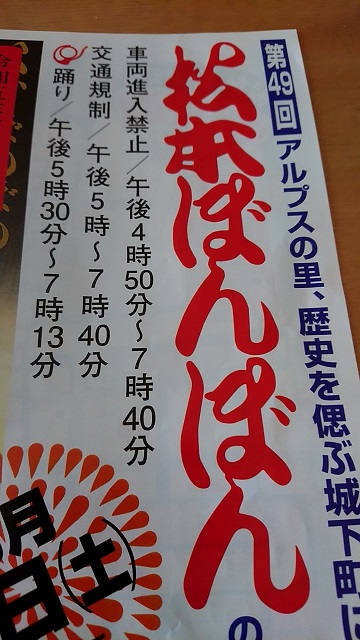 第49回 アルプスの里、歴史を偲ぶ城下町に
松本ぼんぼん
の
車両進入禁止/午後4時50分～7時40分
交通規制/午後5時～7時40分
踊り/午後5時30分～7時13分
月
日(土)